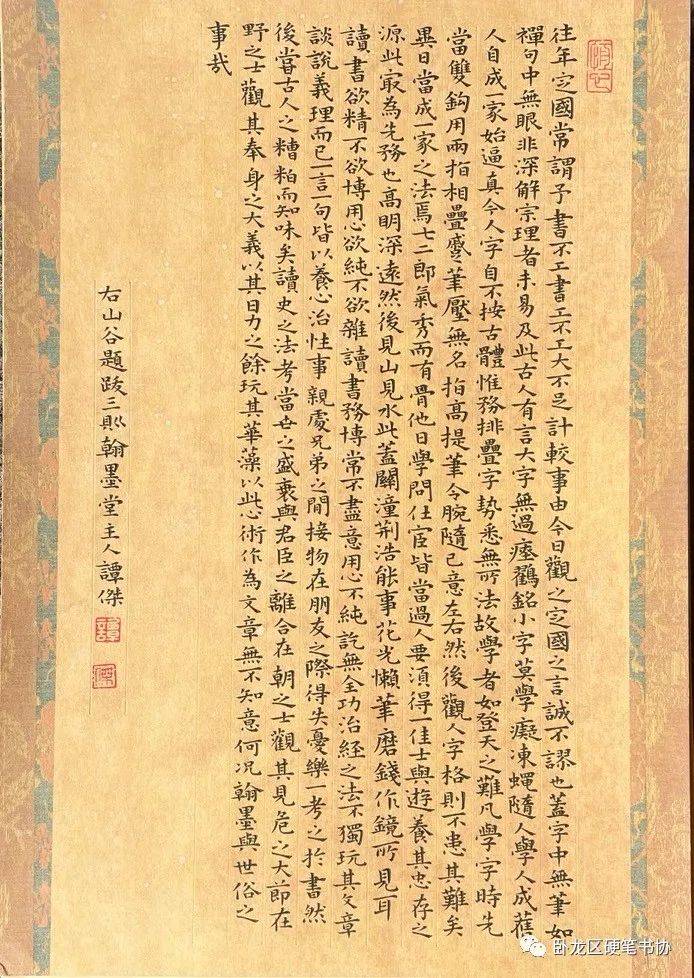 往年定國常謂予書不工書工不工大不足計較事由今日觀之定國之言誠不謬也蓋字中無筆如
禪句中無眼非深解宗理者未易及此古人有言大字無過瘞鶴銘小字莫學癡凍蠅隨人學人成舊
人自成一家始逼真今人字自不按古體惟務排疊字勢悉無所法故學者如登天之難凡學字時先
當雙鈎用兩指相疊蹙筆壓無名指高提筆令腕隨己意左右然後觀人字格則不患其難矣
異日當成一家之法焉七二郎氣秀而有骨他日學問仕宦皆當過人要須得一佳士與遊養其忠存之
源此最為先務也高明深遠然後見山見水此蓋關潼荆浩能事花光懶筆磨錢作鏡所見耳
讀書欲精不欲博用心欲純不欲雜讀書務博常不盡意用心不純訖無全功治經之法不獨玩其文章
談說義理而已一言一句皆以養心治性事親處兄弟之間接物在朋友之際得失憂樂一考之於書然
後嘗古人之糟粕而知味矣讀史之法考當世之盛衰與君臣之離合在朝之士觀其見危之大節在
野之士觀其奉身之大義以其日力之餘玩其華藻以此心術作為文章無不知意何况翰墨與世俗之
事哉
右山谷題跋三則翰墨堂主人譚傑
譚
傑
卧龙区硬笔书协